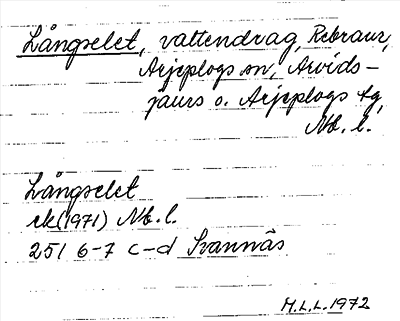 Långselet, vattendrag, Rebraur,
Arjeplogs sn, Arvids-
jaurs o. Arjeplogs tg,
Nb. l.
Långselet
ek (1971) Nb. l.
25 I 6-7 c-d Svannäs
M.L.L. 1972